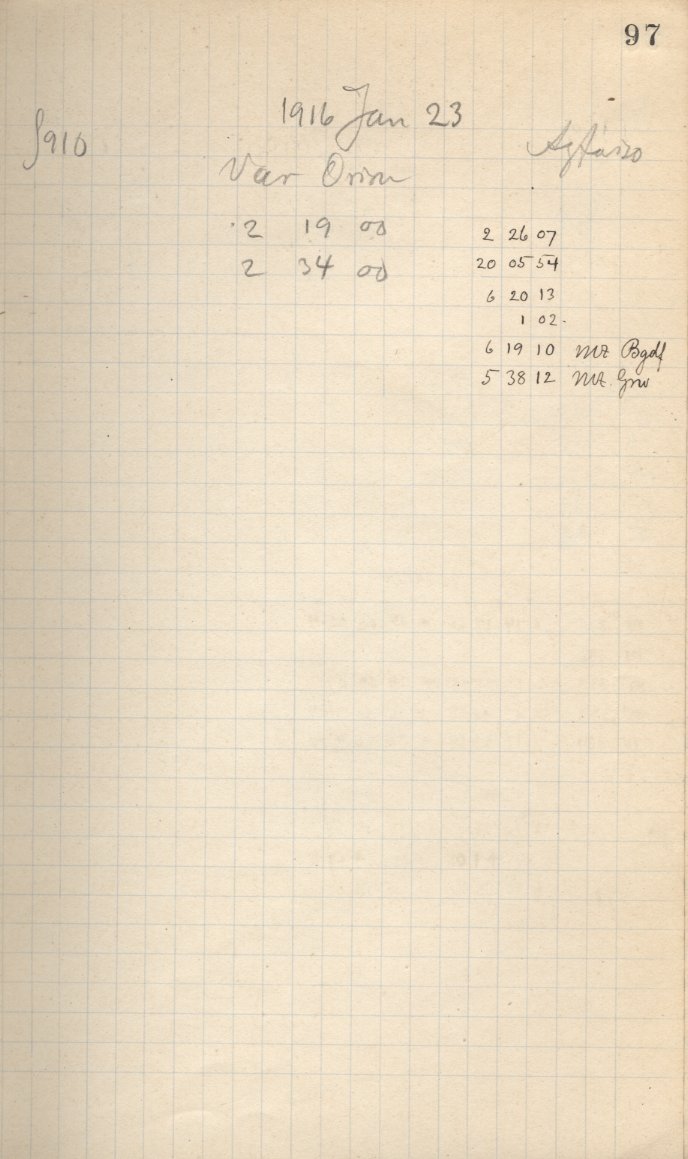 97
1916 Jan 23
S910
Agfaiso
Var Orion
2 19 00
2 34 00
2 26 07
20 05 54
6 20 13
1 02
6 19 10 MZ Bgdf
5 38 12 MZ Grw